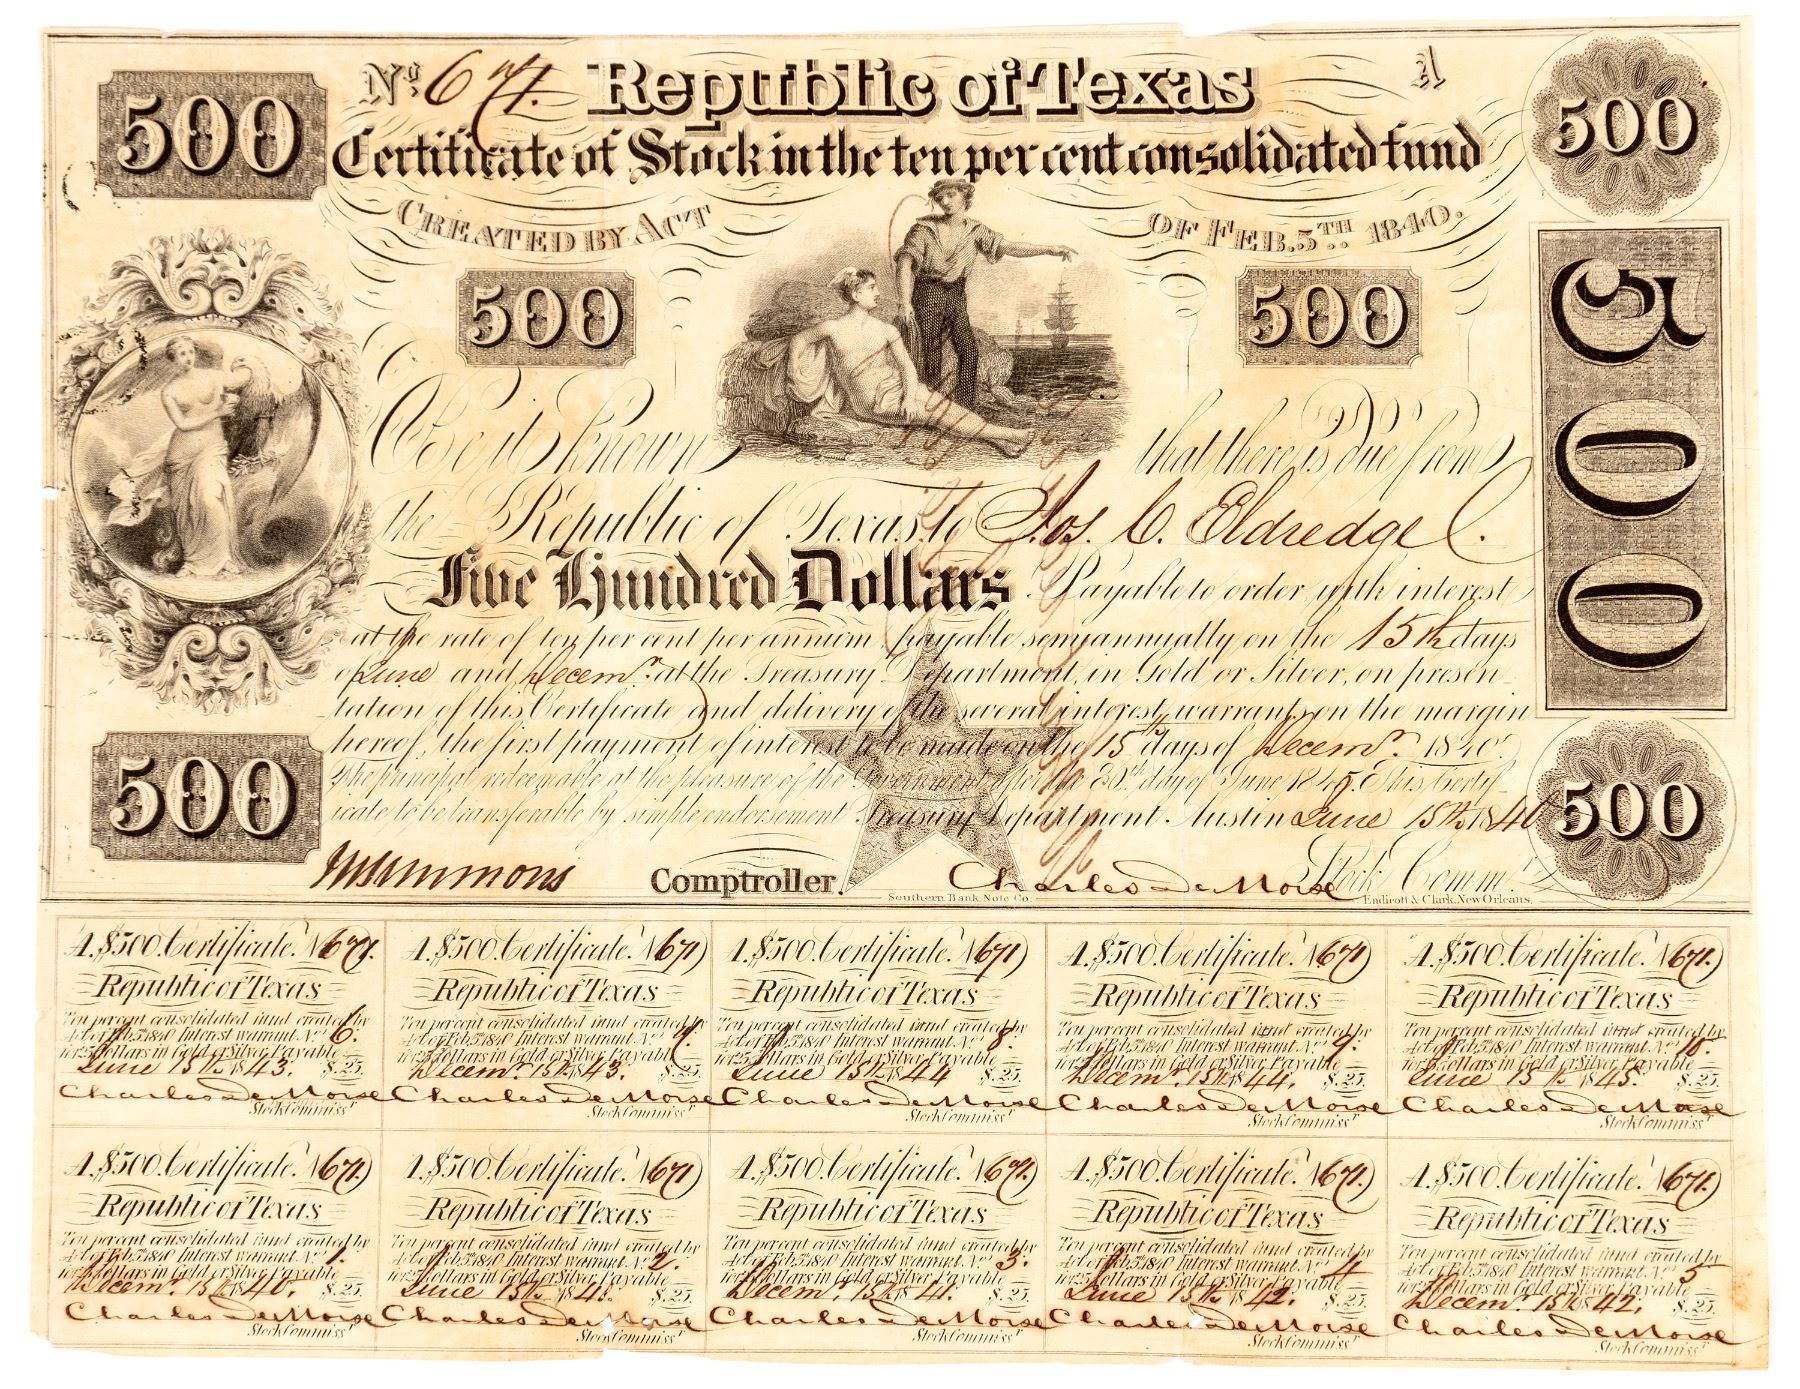 500
No. 671.
Republic of Texas
A
500
Certificate of Stock in the ten per cent consolidated fund
CREATED BY ACT
OF FEB. 5TH. 1840.
500
500
500
Be it known
that there is due from
the Republic of Texas to Jos. C. Eldredge
Five Hundred Dollars Payable to order, with interest
at the rate of ten per cent per annum payable semiannually on the 15th days
of June and Decemr. at the Treasury Department, in Gold or Silver, on presen
tation of this Certificate and delivery of the several interest warrants on the margin
hereof, the first payment of interest to be made on the 15th days of Decemr. 1840.
The principal redeemable at the pleasure of the Government after the 30th day of June 1845. This Certif
icate to be transferable by simple endorsement Treasury Department Austin June 15th 1840
500
500
Comptroller.
Charles DeMorse Stock Commr.
Southern Bank Note Co.
Endicott & Clark, New Orleans.
A. $500. Certificate. No 671.
Republic of Texas
Ten per cent consolidated fund created by
Act of Feb. 5th 1840 Interest warrant. No. 6.
for 25 Dollars in Gold or Silver Payable
June 15th 1843. $.25.
Charles DeMorse
Stock Commissr
A. $500. Certificate. No 671
Republic of Texas
Ten per cent consolidated fund created by
Act of Feb. 5th 1840 Interest warrant. No. 7.
for 25 Dollars in Gold or Silver Payable
Decemr. 15th 1843. $.25.
Charles DeMorse
Stock Commissr
A. $500. Certificate. No 671
Republic of Texas
Ten per cent consolidated fund created by
Act of Feb. 5th 1840 Interest warrant. No. 8.
for 25 Dollars in Gold or Silver Payable
June 15th 1844 $.25.
Charles DeMorse
Stock Commissr
A. $500. Certificate. No 671
Republic of Texas
Ten per cent consolidated fund created by
Act of Feb. 5th 1840 Interest warrant. No. 9.
for 25 Dollars in Gold or Silver Payable
Decemr. 15th 1844. $.25.
Charles DeMorse
Stock Commissr
A. $500. Certificate. No 671.
Republic of Texas
Ten per cent consolidated fund created by
Act of Feb. 5th 1840 Interest warrant. No. 10.
for 25 Dollars in Gold or Silver Payable
June 15th 1845. $.25.
Charles DeMorse
Stock Commissr
A. $500. Certificate. No 671.
Republic of Texas
Ten per cent consolidated fund created by
Act of Feb. 5th 1840 Interest warrant. No. 1.
for 25 Dollars in Gold or Silver Payable
Decemr. 15th 1840. $.25.
Charles DeMorse
Stock Commissr
A. $500. Certificate. No 671
Republic of Texas
Ten per cent consolidated fund created by
Act of Feb. 5th 1840 Interest warrant. No. 2.
for 25 Dollars in Gold or Silver Payable
June 15th 1841. $.25.
Charles DeMorse
Stock Commissr
A. $500. Certificate. No 671.
Republic of Texas
Ten per cent consolidated fund created by
Act of Feb. 5th 1840 Interest warrant. No. 3.
for 25 Dollars in Gold or Silver Payable
Decemr. 15th 1841. $.25.
Charles DeMorse
Stock Commissr
A. $500. Certificate. No 671.
Republic of Texas
Ten per cent consolidated fund created by
Act of Feb. 5th 1840 Interest warrant. No. 4
for 25 Dollars in Gold or Silver Payable
June 15th 1842. $.25.
Charles DeMorse
Stock Commissr
A. $500. Certificate. No 671.
Republic of Texas
Ten per cent consolidated fund created by
Act of Feb. 5th 1840 Interest warrant. No. 5
for 25 Dollars in Gold or Silver Payable
Decemr. 15th 1842. $.25.
Charles DeMorse
Stock Commissr